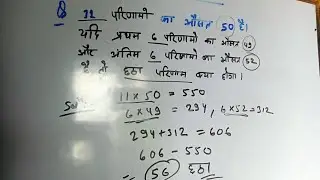 Q 11 परिणामो का औसत 50 है।
यदि प्रथम 6 परिणामो का औसत 49
और अंतिम 6 परिणामो का औसत 52
है तो छठा परिणाम क्या होगा।
11 × 50 = 550
6 × 49 = 294, 6 × 52 = 312
294 + 312 = 606
606 - 550
= 56 छठा